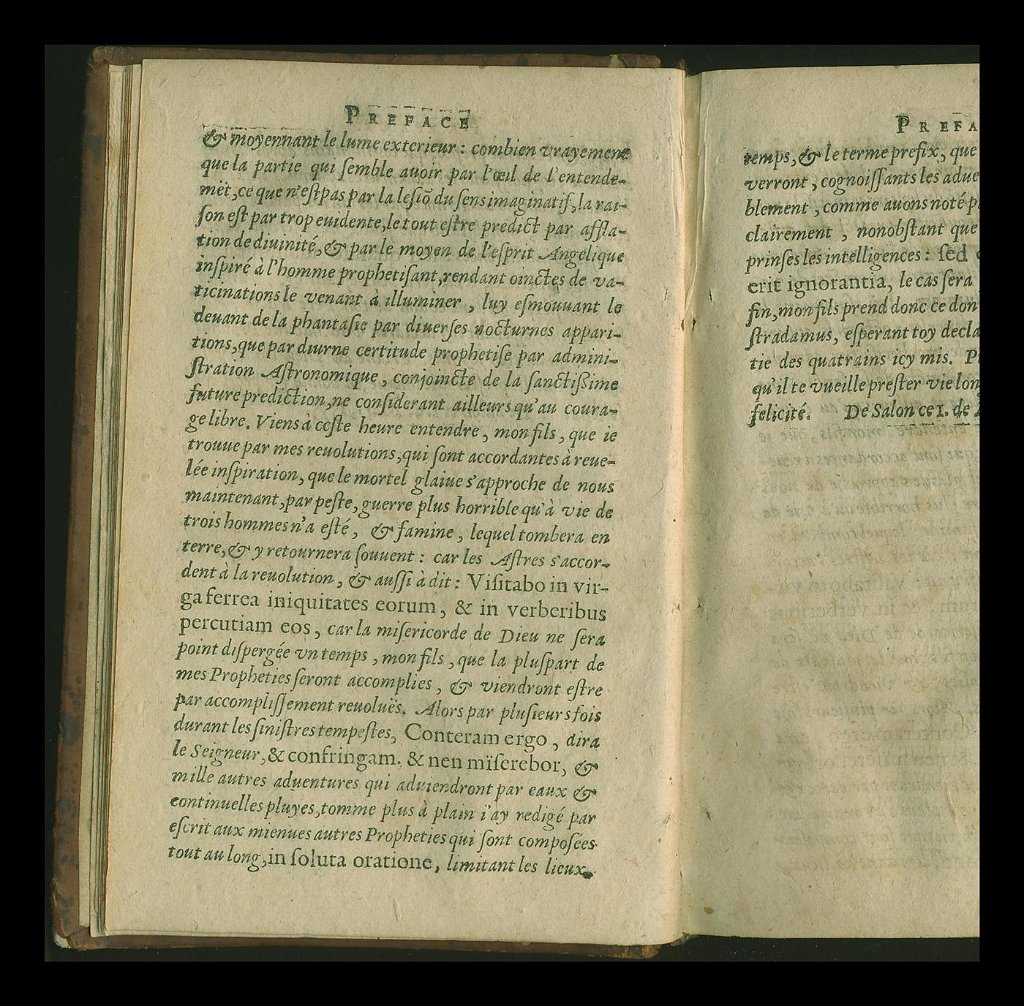 PREFACE
& moyennant le lume exterieur : combien vrayement
que la partie qui semble auoir par l'œil de l'entende-
mẽt, ce que n'est pas par la lesiõ du sens imaginatif, la rai-
son est par trop euidente, le tout estre predict par affla-
tion de diuinité, & par le moyen de l'esprit Angelique
inspiré à l'homme prophetisant, rendant oinctes de va-
ticinations le venant à illuminer, luy esmouuant le
deuant de la phantasie par diuerses nocturnes appari-
tions, que par diurne certitude prophetise par admini-
stration Astronomique, conjoincte de la sanctissime
future prediction, ne considerant ailleurs qu'au coura-
ge libre. Viens à ceste heure entendre, mon fils, que ie
trouue par mes reuolutions, qui sont accordantes à reue-
lée inspiration, que le mortel glaiue s'approche de nous
maintenant, par peste, guerre plus horrible qu'à vie de
trois hommes n'a esté, & famine, lequel tombera en
terre, & y retournera souuent : car les Astres s'accor-
dent à la reuolution, & aussi à dit : Visitabo in vir-
ga ferrea iniquitates eorum, & in verberibus
percutiam eos, car la misericorde de Dieu ne sera
point dispergée vn temps, mon fils, que la pluspart de
mes Propheties seront accomplies, & viendront estre
par accomplissement reuolués. Alors par plusieurs fois
durant les sinistres tempestes, Conteram ergo, dira
le Seigneur, & confringam. & nen miserebor, &
mille autres aduentures qui aduiendront par eaux &
continuelles pluyes, tomme plus à plain i'ay redigé par
escrit aux mienues autres Propheties qui sont composées
tout au long, in soluta oratione, limitant les lieux,
PREFA
temps, & le terme prefix, que
verront, cognoissants les adue
blement, comme auons noté p
clairement, nonobstant que
prinses les intelligences : sed
erit ignorantia, le cas sera
fin, mon fils prend donc ce don
stradamus, esperant toy decla
tie des quatrains icy mis. P
qu'il te vueille prester vie lon
felicité. De Salon ce 1. de